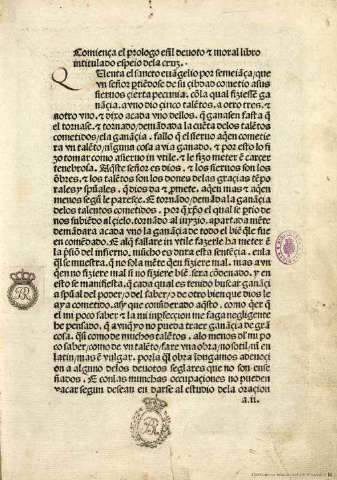 Comiença el prologo eñl deuoto & moral libro
intitulado espejo dela cruz.
Uenta el sancto euãgelio por semejãça, que
vn señor ptiẽdose de su çibdad cometio a sus
sieruos çierta pecunia, cõ la qual fiziessẽ ga-
nãçia. a vno dio çinco talẽtos, a otro tres, &
a otro vno, & dixo a cada vno dellos. q̃ ganasen fasta q̃
el tornase, & tornado, demãdada la cuẽta delos talẽtos
cometidos, & dela ganãçia, fallo q̃ el sieruo aqen cometie
ra vn talẽto, nĩguna cosa a via ganado, & por esto lo fi
zo tomar como a sieruo in vtile, & le fizo meter ẽ carcer
tenebrosa. Aq̃ste señor es dios, & los sieruos son los
õbres, & los talẽtos son los dones delas graçias tẽpo
rales y spũales, q̃ dios da & pmete, a qen mas & a qen
menos segũ le paresçe. & tornado, demãda la ganãçia
delos talentos cometidos, por q̃ xp̃o el qual se ptio de
nos subiẽdo al çielo, tornado al iuyzio, a parta da mẽte
demãdara a cada vno la ganãçia de todo el biẽ q̃ le fue
en comẽdado, E al q̃ fallare in vtile fazerle ha meter ẽ
la p̃siõ del infierno, mucho es dura esta sentẽçia, en la
q̃l se muestra, q̃ no sola mẽte q̃en fiziere mal, mas avn
q̃en no fiziere mal si no fiziere biẽ sera cõdenado, y en
esto se manifiesta, q̃ cada qual es tenido buscar ganãçi
a spũal del poder, & del saber, & de otro bien que dios le
aya cometido, assi que considerado aq̃sto, como q̃er q̃
el mi poco saber & la mi inpfeccion me faga negligente
he pensado, q̃ avn q̃ yo no pueda traer ganãçia de grã
cosa, q̃si como de muchos talẽtos, alo menos del mi po
co saber, como de vn talẽto, fare vna obra, no sotil, nĩ en
latin, mas ẽ vulgar, por la q̃l obra pongamos a deuoçi
on a alguno delos deuotos seglares que no son ense
ñados, E con las munchas occupaçiones no pueden
vacar segun desean en darse al estudio dela oracion
a.ii.